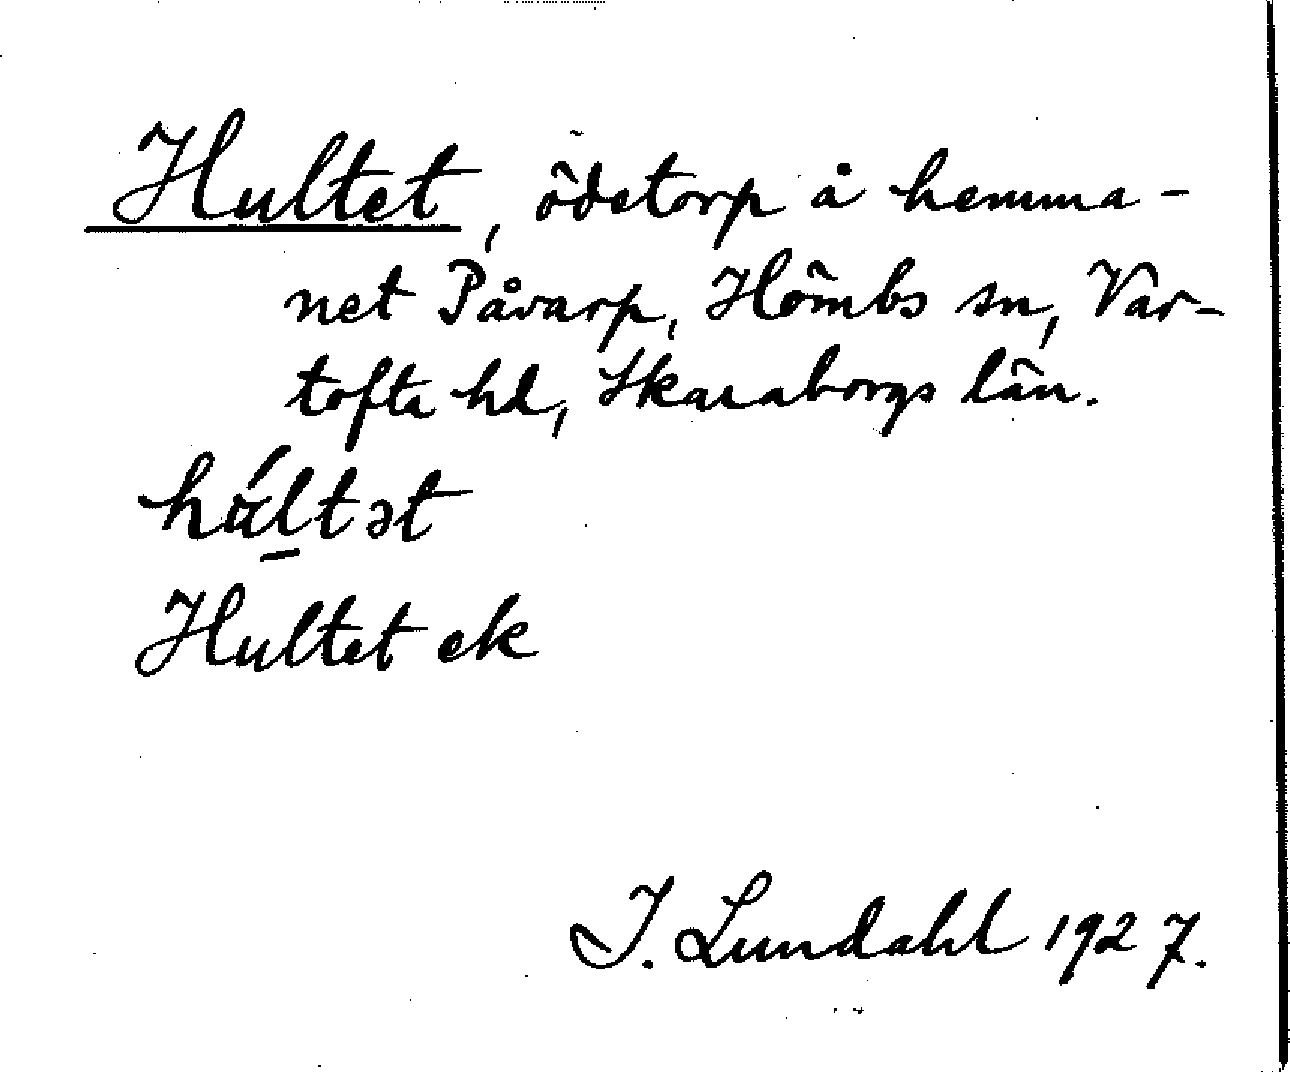 Hultet, ödetorp å hemma-
net Påvarp, Hömbs sn, Var-
tofta hd, Skaraborgs län.
húltət
Hultet ek
I. Lundahl 1927.